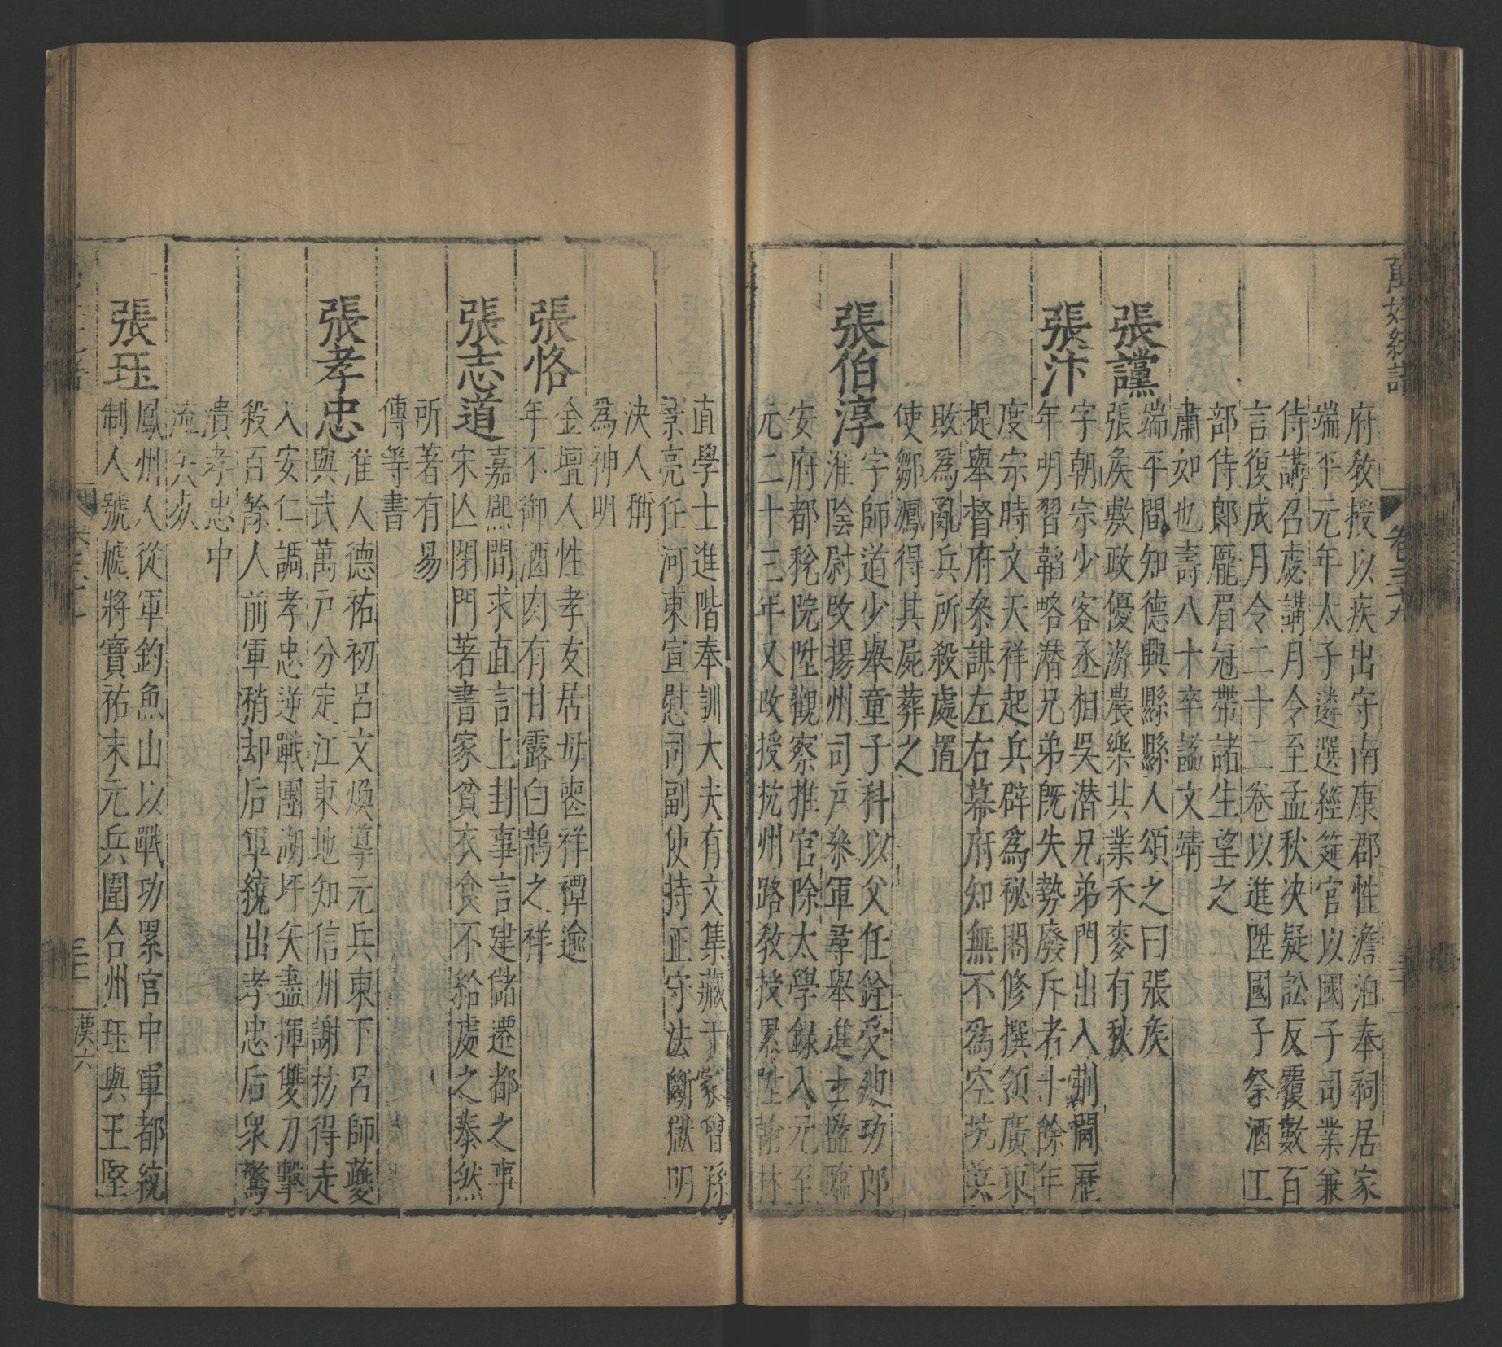 萬姓統譜
卷三十九
府教授以疾出守南康郡性澹泊奉祠居家
端平元年太子遴選經筵官以國子司業兼
侍講召處講月令至孟秋决疑訟反覆數百
言復成月令二十二卷以進陞國子祭酒工
部侍郎龐眉冠帶諸生望之
肅如也壽八十卒謚文靖
張讜
端平間知德興縣縣人頌之曰張矦
張矦敷政優游農樂其業禾麥有秋
張汴
字朝宗少客丞相吳潜兄弟門出入荆閫歷
年明習韜略潜兄弟既失勢廢斥者十餘年
度宗時文天祥起兵辟爲秘閣修撰領廣東
提舉督府叅謀左右幕府知無不爲空坑
敗爲亂兵所殺處置
使鄒㵯得其屍葬之
張伯淳
字師道少舉童子科以父任銓受廸功郎
淮陰尉改揚州司戸叅軍尋舉進士監臨
安府都稅院陞觀察推官除太學録入元至
元二十三年又改授杭州路敎授累陞翰林
直學士進階奉訓大夫有文集藏于家曾孫
景亮任河東宣慰司副使持正守法斷獄明
决人稱
爲神明
張恪
金壇人性孝友居毋喪祥禫逾
年不御酒肉有甘露白鵲之祥
張志道
嘉熙間求直言上封事言建儲遷都之事
宋亾閉門著書家貧衣食不給處之泰然
所著有易
傳等書
張孝忠
淮人德祐初呂文煥導元兵東下呂師夔
與武萬戸分定江東地知信州謝枋得走
入安仁調孝忠逆戰團湖坪矢盡揮雙刀擊
殺百餘人前軍稍却后軍繞出孝忠后衆驚
潰孝忠中
流矢死
張珏
鳳州人從軍釣魚山以戰功累官中軍都統
制人號虓將寳祐末元兵圍合州珏與王堅
三十一
漢六